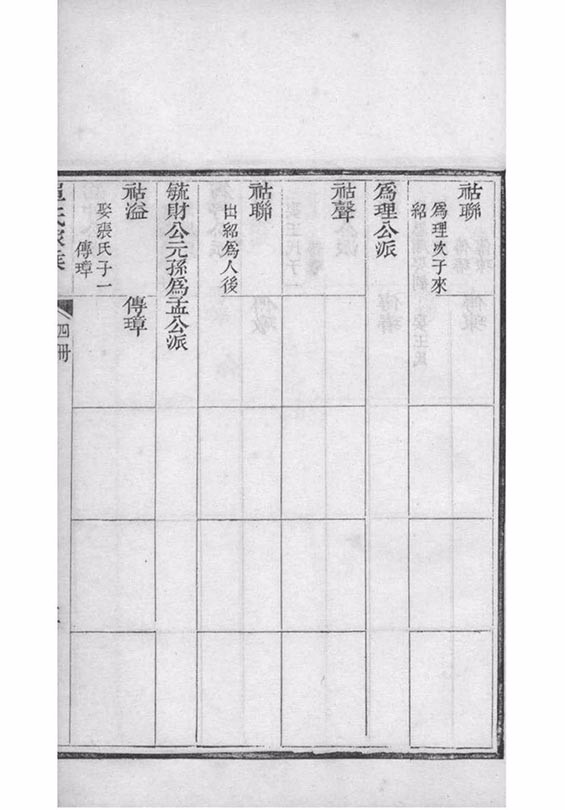 祜聯
爲理次子來
紹
爲理公派
祜聲
祜聯
出紹爲人後
毓財公元孫爲孟公派
祜溢
娶張氏子一
傳璋
傳璋
四冊